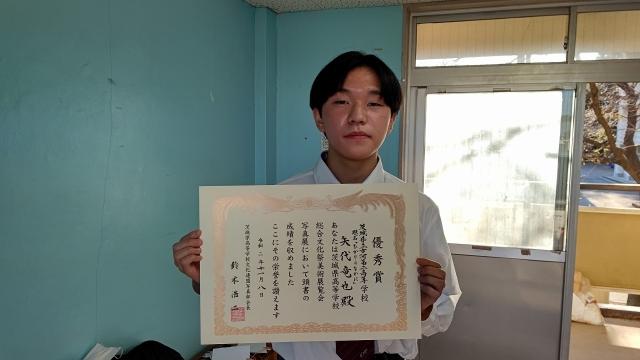 優秀賞
茨城県立古河第三高等学校
矢代竜也殿
あなたは茨城県高等学校
総合文化祭美術展覧会
写真展において頭書の
成績を収めました
ここにその栄誉を讃えます
令和二年十一月八日
茨城県高等学校文化連盟写真部会長
鈴木浩二